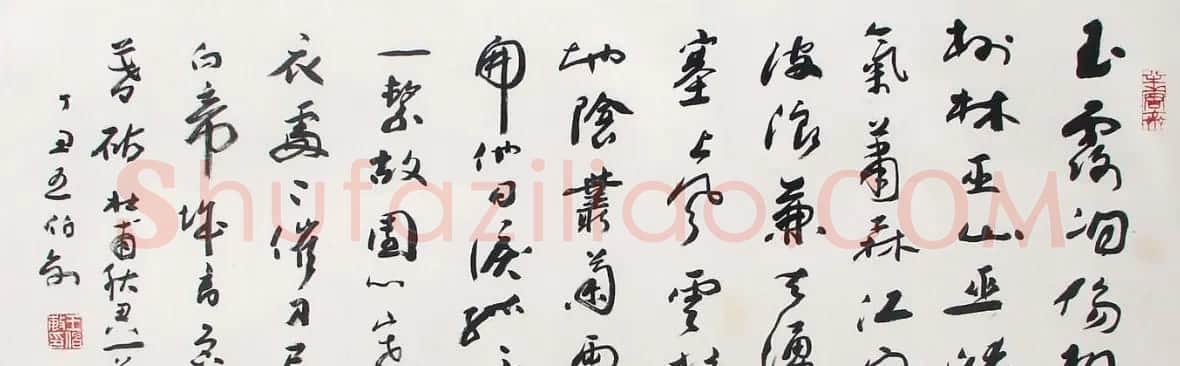 玉露凋傷
樹林巫山巫峽
氣蕭森江間
波浪兼天湧
塞上風雲
地陰叢菊兩
開他日淚孤
一繫故園心寒
衣處々催刀尺
白帝城高急
暮砧 杜甫秋興一
丁丑王伯敏
Shufaziliao.COM